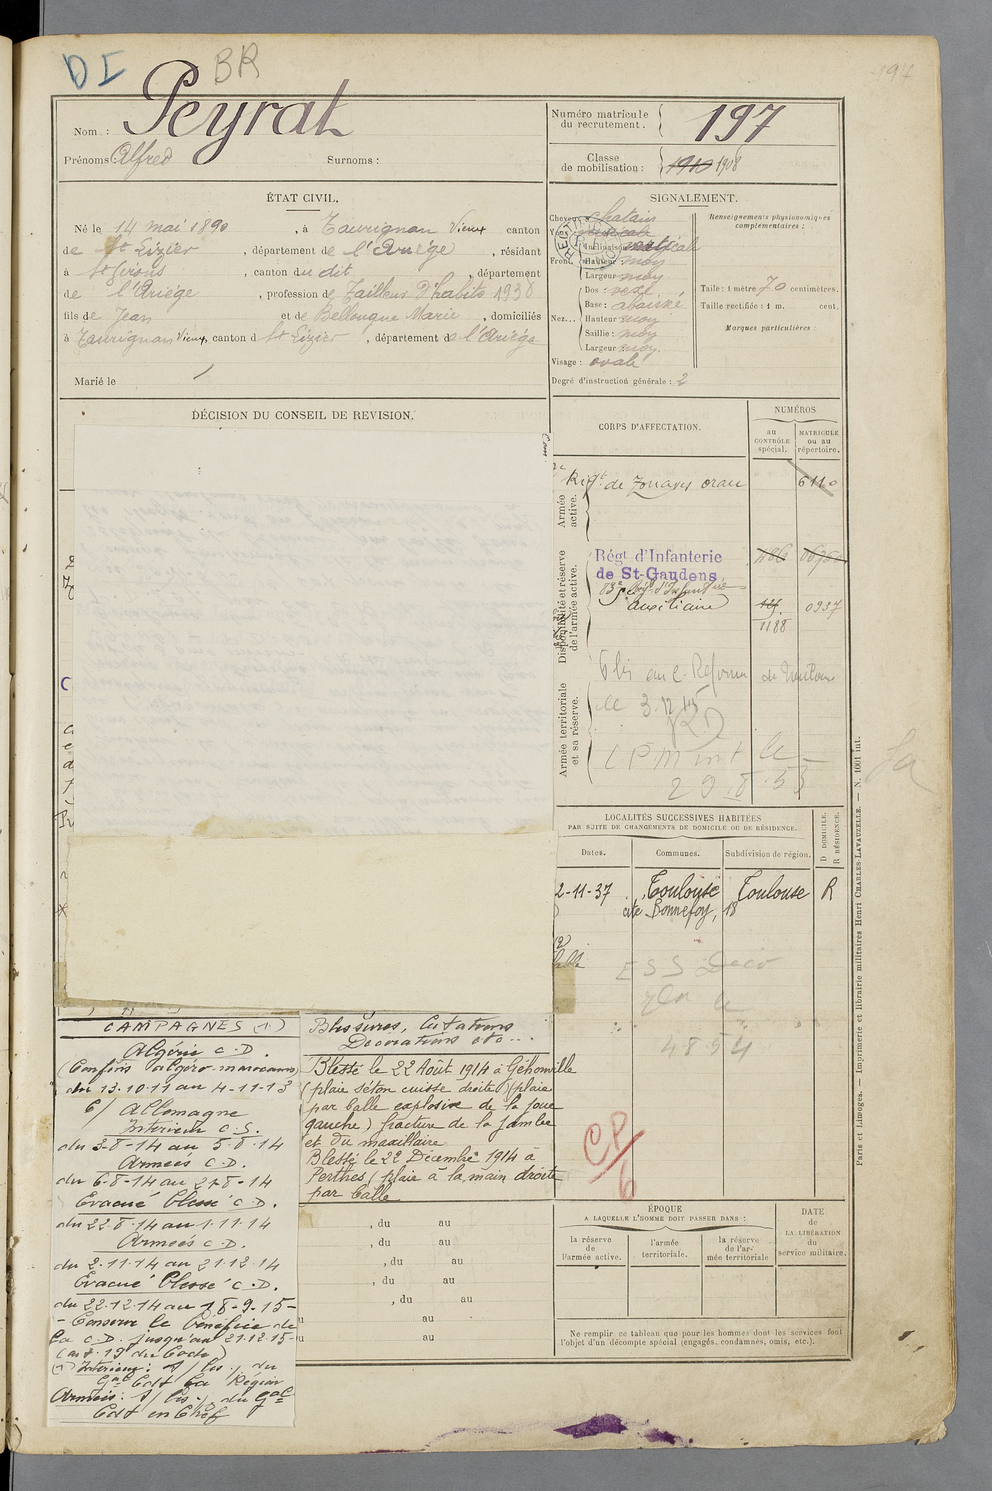 DI BR
Nom : Peyrat
Prénoms : Alfred Surnoms :
Numéro matricule du recrutement. 197
Classe de mobilisation : 1910 1908
ÉTAT CIVIL.
Né le 14 mai 1890, à Taurignan Vieux canton
de St Lizier, département de l'Ariège, résidant
à St Girons, canton du dit, département
de l'Ariège, profession de Tailleur d'habits 1938
fils de Jean et de Bellouque Marie, domiciliés
à Taurignan Vieux, canton d St Lizier, département de l'Ariège
Marié le
SIGNALEMENT.
Cheveux chatain
Yeux
Inclinaison verticale
Front. Hauteur : moy
Largeur moy
Dos : vexé
Base : abaissé
Nez... Hauteur moy
Saillie : moy
Largeur moy.
Visage : ovale
Degré d'instruction générale : 2
Renseignements physionomiques complémentaires :
Taille : 1 mètre 70 centimètres.
Taille rectifiée : 1 m. cent.
Marques particulières :
DÉCISION DU CONSEIL DE REVISION.
CORPS D'AFFECTATION.
NUMÉROS
au CONTRÔLE spécial.
MATRICULE ou au répertoire.
Armée active.
Régt de Zouaves Oran 6110
Disponibilité et réserve de l'armée active.
Régt d'Infanterie
de St-Gaudens
83e Rég. d'Infanterie
auxiliaire 0937
1188
Armée territoriale et sa réserve.
le 3.12.15
RD
29.8.53
LOCALITÉS SUCCESSIVES HABITÉES
PAR SUITE DE CHANGEMENTS DE DOMICILE OU DE RÉSIDENCE.
Dates. Communes. Subdivision de région. D DOMICILE. R RÉSIDENCE.
2-11-37 Toulouse Toulouse R
cité Bonnefoy, 18
4 8 54
CP/6
CAMPAGNES (1)
Algérie C.D.
(Confins algéro-marocains)
du 13-10-11 au 4-11-13
C/ Allemagne
Intérieur C.S.
du 3-8-14 au 5-8-14
Armées C.D.
du 6-8-14 au 21-8-14
Evacué blessé C.D.
du 22.8.14 au 1.11.14
Armées C.D.
du 2.11.14 au 21.12.14
Evacué blessé C.D.
du 22.12.14 au 18-9-15-
- Conserve le bénéfice de
la C.D. jusqu'au 21.12.15-
(art. 19 du Code)
(1) Intérieur : s/ du
Gal Cdt la Région
Armées : s/ du Gal
Cdt en Chef
Blessures, Citations
Décorations etc...
Blessé le 22 Août 1914 à Géhonville
(plaie séton cuisse droite) (plaie
par balle explosive de la joue
gauche) fracture de la jambe
et du maxillaire
Blessé le 22 Décembre 1914 à
Perthes (plaie à la main droite
par balle
, du au
, du au
, du au
, du au
, du au
au
au
ÉPOQUE
A LAQUELLE L'HOMME DOIT PASSER DANS :
la réserve de l'armée active.
l'armée territoriale.
la réserve de l'armée territoriale
DATE de LA LIBÉRATION du service militaire.
Ne remplir ce tableau que pour les hommes dont les services font
l'objet d'un décompte spécial (engagés, condamnés, omis, etc.).
Paris et Limoges. — Imprimerie et librairie militaires Henri CHARLES-LAVAUZELLE. — N. 1001 int.